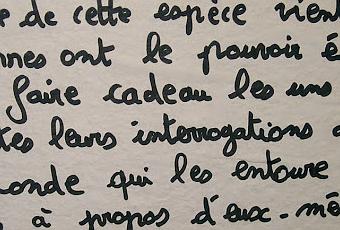 de cette espèce vien
nnes ont le pouvoir é
faire cadeau les uns
tes leurs interrogations
onde qui les entoure
à propos d'eux-mê